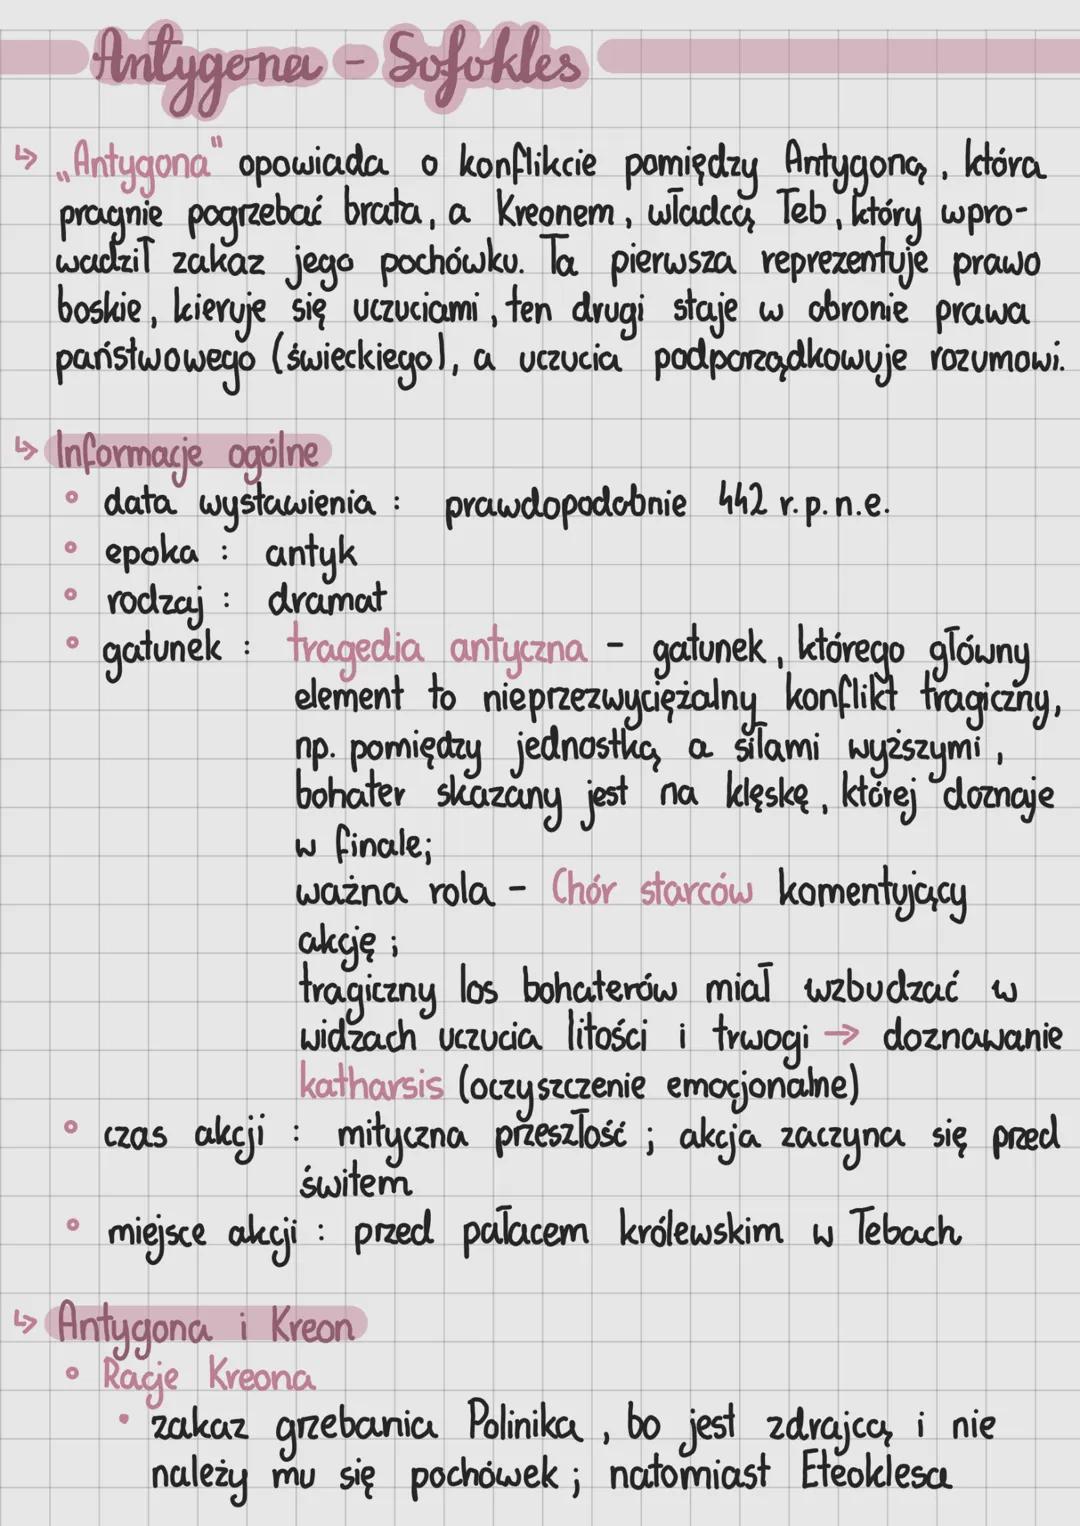 Antygona - Sofokles
↳ „Antygona" opowiada o konflikcie pomiędzy Antygoną, która
pragnie pogrzebać brata, a Kreonem, władcą Teb, który wpro-
wadził zakaz jego pochówku. Ta pierwsza reprezentuje prawo
boskie, kieruje się uczuciami, ten drugi staje w obronie prawa
państwowego (świeckiego), a uczucia podporządkowuje rozumowi.
↳ Informacje ogólne
° data wystawienia : prawdopodobnie 442 r. p. n. e.
° epoka : antyk
° rodzaj : dramat
° gatunek : tragedia antyczna - gatunek, którego główny
element to nieprzezwyciężalny konflikt tragiczny,
np. pomiędzy jednostką a siłami wyższymi,
bohater skazany jest na klęskę, której doznaje
w finale;
ważna rola - Chór starców komentujący
akcję;
tragiczny los bohaterów miał wzbudzać w
widzach uczucia litości i trwogi → doznawanie
katharsis (oczyszczenie emocjonalne)
° czas akcji : mityczna przeszłość ; akcja zaczyna się przed
świtem
° miejsce akcji : przed pałacem królewskim w Tebach
↳ Antygona i Kreon
° Racje Kreona
• zakaz grzebania Polinika, bo jest zdrajcą i nie
należy mu się pochówek ; natomiast Eteoklesa